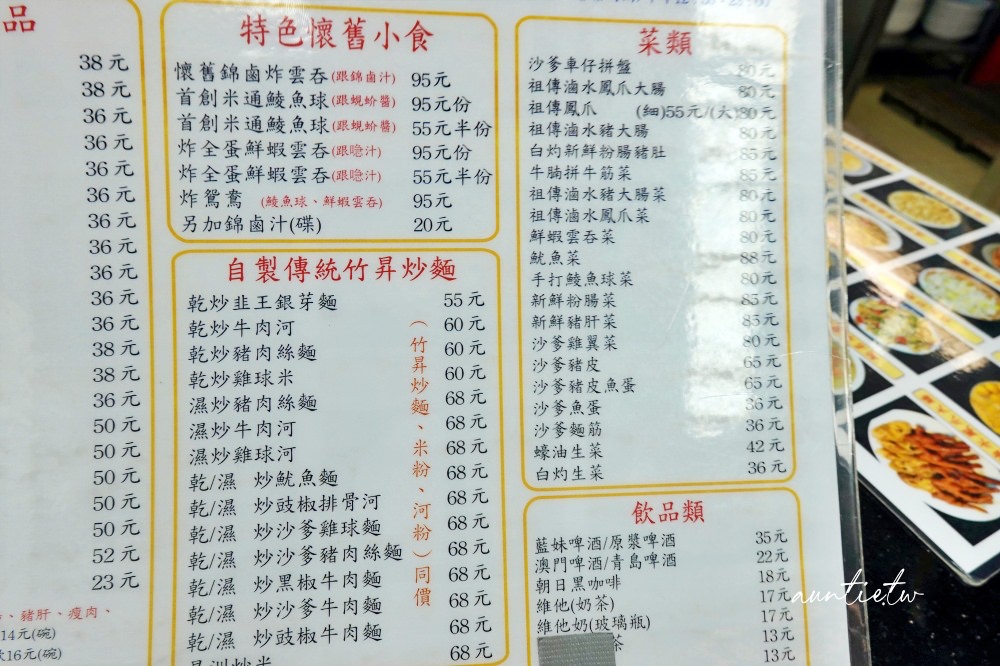 品
38元
38元
36元
36元
36元
36元
36元
36元
36元
36元
36元
38元
38元
36元
50元
50元
50元
50元
52元
23元
、豬肝、瘦肉、
14元(碗)
16元(碗)
特色懷舊小食
懷舊錦鹵炸雲吞(跟錦鹵汁) 95元
首創米通鯪魚球(跟蜆蚧醬) 95元份
首創米通鯪魚球(跟蜆蚧醬) 55元半份
炸全蛋鮮蝦雲吞(跟喼汁) 95元份
炸全蛋鮮蝦雲吞(跟喼汁) 55元半份
炸鴛鴦 (鯪魚球、鮮蝦雲吞) 95元
另加錦鹵汁(碟) 20元
自製傳統竹昇炒麵
乾炒韭王銀芽麵 55元
乾炒牛肉河 60元
乾炒豬肉絲麵 60元
乾炒雞球米 60元
濕炒豬肉絲麵 68元
濕炒牛肉河 68元
濕炒雞球河 68元
乾/濕 炒魷魚麵 68元
乾/濕 炒豉椒排骨河 68元
乾/濕 炒沙爹雞球麵 68元
乾/濕 炒沙爹豬肉絲麵 68元
乾/濕 炒黑椒牛肉麵 68元
乾/濕 炒沙爹牛肉麵 68元
乾/濕 炒豉椒牛肉麵 68元
星洲炒米 68元
(竹昇炒麵、米粉、河粉)同價
菜類
沙爹車仔拼盤 80元
祖傳滷水鳳爪大腸 80元
祖傳鳳爪 (細)55元/(大)80元
祖傳滷水豬大腸 80元
白灼新鮮粉腸豬肚 85元
牛腩拼牛筋菜 85元
祖傳滷水豬大腸菜 80元
祖傳滷水鳳爪菜 80元
鮮蝦雲吞菜 80元
魷魚菜 88元
手打鯪魚球菜 80元
新鮮粉腸菜 85元
新鮮豬肝菜 85元
沙爹雞翼菜 80元
沙爹豬皮 65元
沙爹豬皮魚蛋 65元
沙爹魚蛋 36元
沙爹麵筋 36元
蠔油生菜 42元
白灼生菜 36元
飲品類
藍妹啤酒/原漿啤酒 35元
澳門啤酒/青島啤酒 22元
朝日黑咖啡 18元
維他(奶茶) 17元
維他奶(玻璃瓶) 17元
茶 13元
13元
auntie.tw